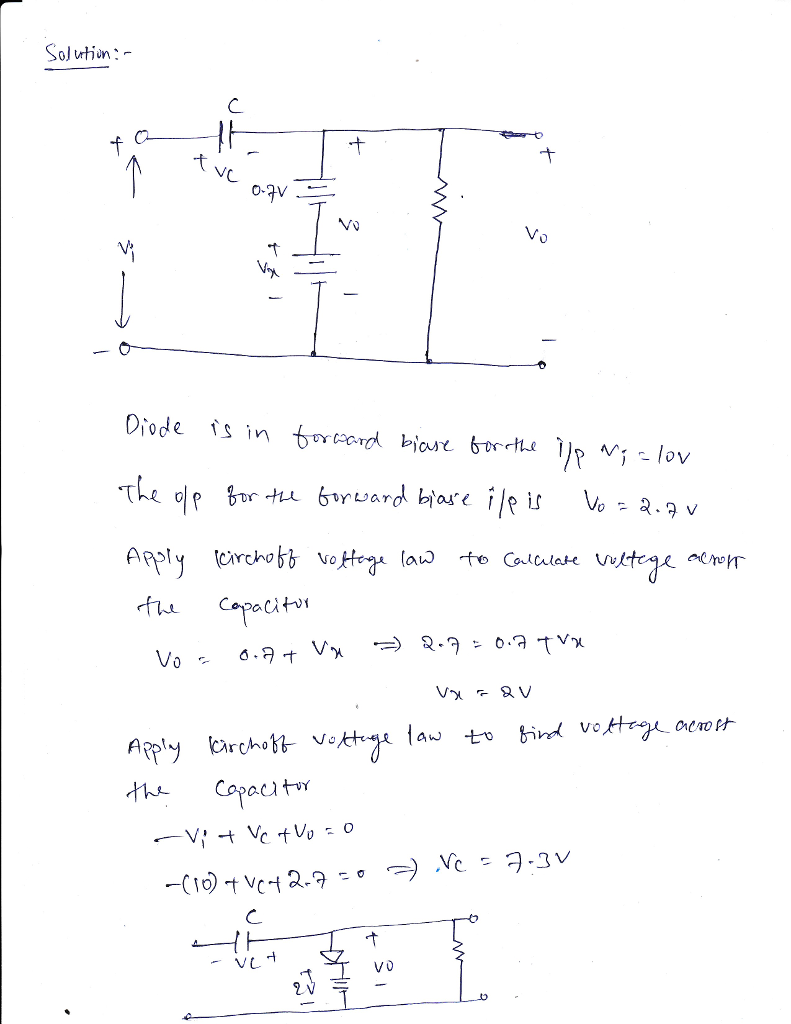 Solution:-
C
+
+ Vc -
+
+
0.7V
Vo
Vo
Vi
+
Vx
-
-
-
-
Diode is in forward biase for the i/p Vi = 10v
The o/p for the forward biase i/p is Vo = 2.7v
Apply kirchoff voltage law to Calculate voltege across
the Capacitor
Vo = 0.7 + Vx ⇒ 2.7 = 0.7 + Vx
Vx = 2V
Apply kirchoff voltage law to find voltage across
the Capacitor
-Vi + Vc + Vo = 0
-(10) + Vc + 2.7 = 0 ⇒ Vc = 7.3V
C
- Vc +
+
+
2V
Vo
-
-